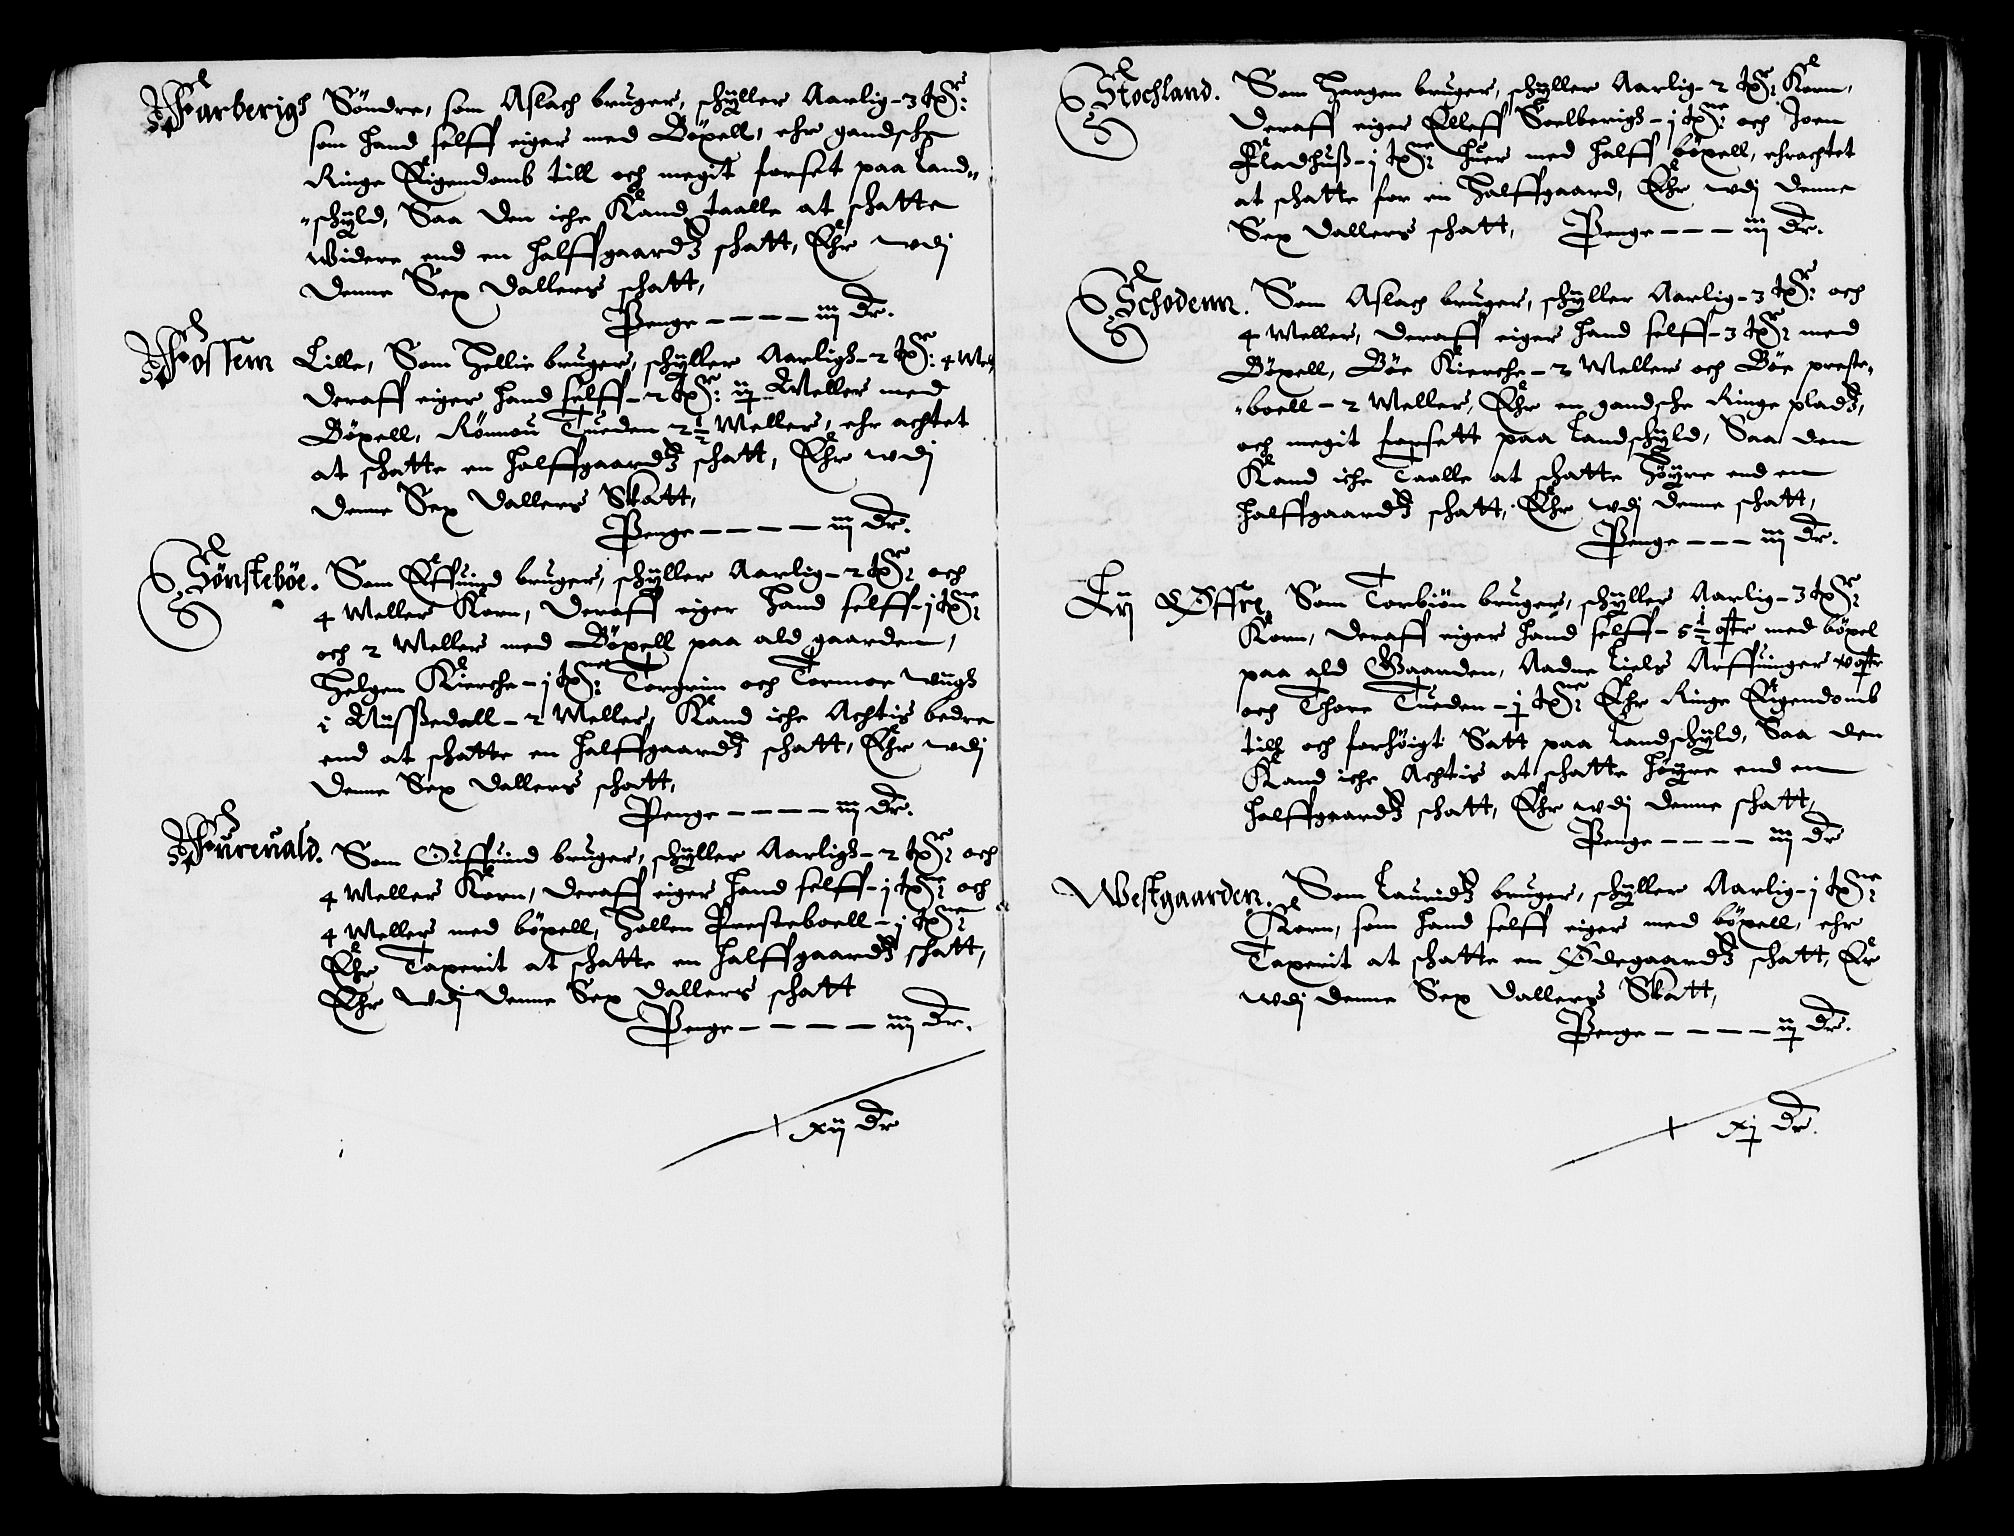 Farberigh Søndre, som Aslach bruger, schyller Aarlig - 3 tɤr:
som hand selff eiger med Böxell, ehr gandsche
Ringe Eigendomb till och megit forset paa Land„
„schyld, Saa den iche Kand taalle at schatte
widere end en halffgaardtz schatt, Ehr wdj
denne Sex dallers schatt,
Penge - - - - iij dr.
Fossem Lille, Som Hellie bruger, schyller Aarligh - 2 tɤr: 4 Mel
deraff eiger hand selff - 2 tɤr: ij Meller med
Böxell, Rönnou Tueden 2 1/2 Meller, ehr achtet
at schatte en halffgaardtz schatt, Ehr wdj
denne Sex dallers Skatt,
Penge - - - - iij dr.
Sönsteböe. Som Effuind bruger, schyller Aarlig - 2 tɤr och
4 Meller Korn, deraff eiger hand selff - j tɤne
och 2 Meller med Böxell paa ald gaarden,
Helgen Kierche - j tɤne Torgrim och Tormoe
i - 2 Meller, Kand iche Achtis bedre
end at schatte en halffgaardtz schatt, Ehr wdj
denne Sex dallers schatt,
Penge - - - - iij dr.
Fureuald. Som Ouffuind bruger, schyller Aarligh - 2 tɤr och
4 Meller Korn, deraff eiger hand selff - j tɤne och
4 Meller med böxell, Hollen Presteboell - j tɤne
Ehr Taxerit at schatte en halffgaardtz schatt,
Ehr wdj denne Sex dallers schatt
Penge - - - - iij dr.
xij dr
Stochland. Som Haagen bruger, schyller Aarlig - 2 tɤr Korn,
deraff eiger Elleff Soelberigh - j tɤne och Joen
Kladhuß - j tɤne huer med halff böxell, ehrachtet
at schatte for en halffgaard, Ehr wdj denne
Sex dallers schatt, Penge - - - iij dr.
Schodenn. Som Aslach bruger, schyller Aarlig - 3 tɤr och
4 Meller, deraff eiger hand selff - 3 tɤr med
Böxell, Böe Kierche - 2 Meller och Böe prest„
„boell - 2 Meller, Ehr en gandsche Ringe pladtz,
och megit forsatt paa Landschyld, Saa den
Kand iche Taalle at schatte höyre end en
halffgaardtz schatt, Ehr wdj denne schatt,
Penge - - - iij dr.
Lij Øffre, Som Torbiön bruger, schyller Aarlig - 3 tɤr
Korn, deraff eiger hand selff - 5 1/2 qtr med böxel
paa ald Gaarden, Aadne Liels Arffuinger qtr
och Thore Tueden - j tɤne Ehr Ringe Eigendomb
till och forhöigt Satt paa Landschyld, Saa den
Kand iche Achtis at schatte höyre end en
halffgaardtz schatt, Ehr wdj denne schatt,
Penge - - - - iij dr
Westgaarden. Som Lauridtz bruger, schyller Aarlig - j tɤne
Korn, som hand selff eiger med böxell, ehr
Taxerit at schatte en Ødegaardtz schatt, Er
wdj denne Sex dallers Skatt,
Penge - - - - ij dr.
xj dr.